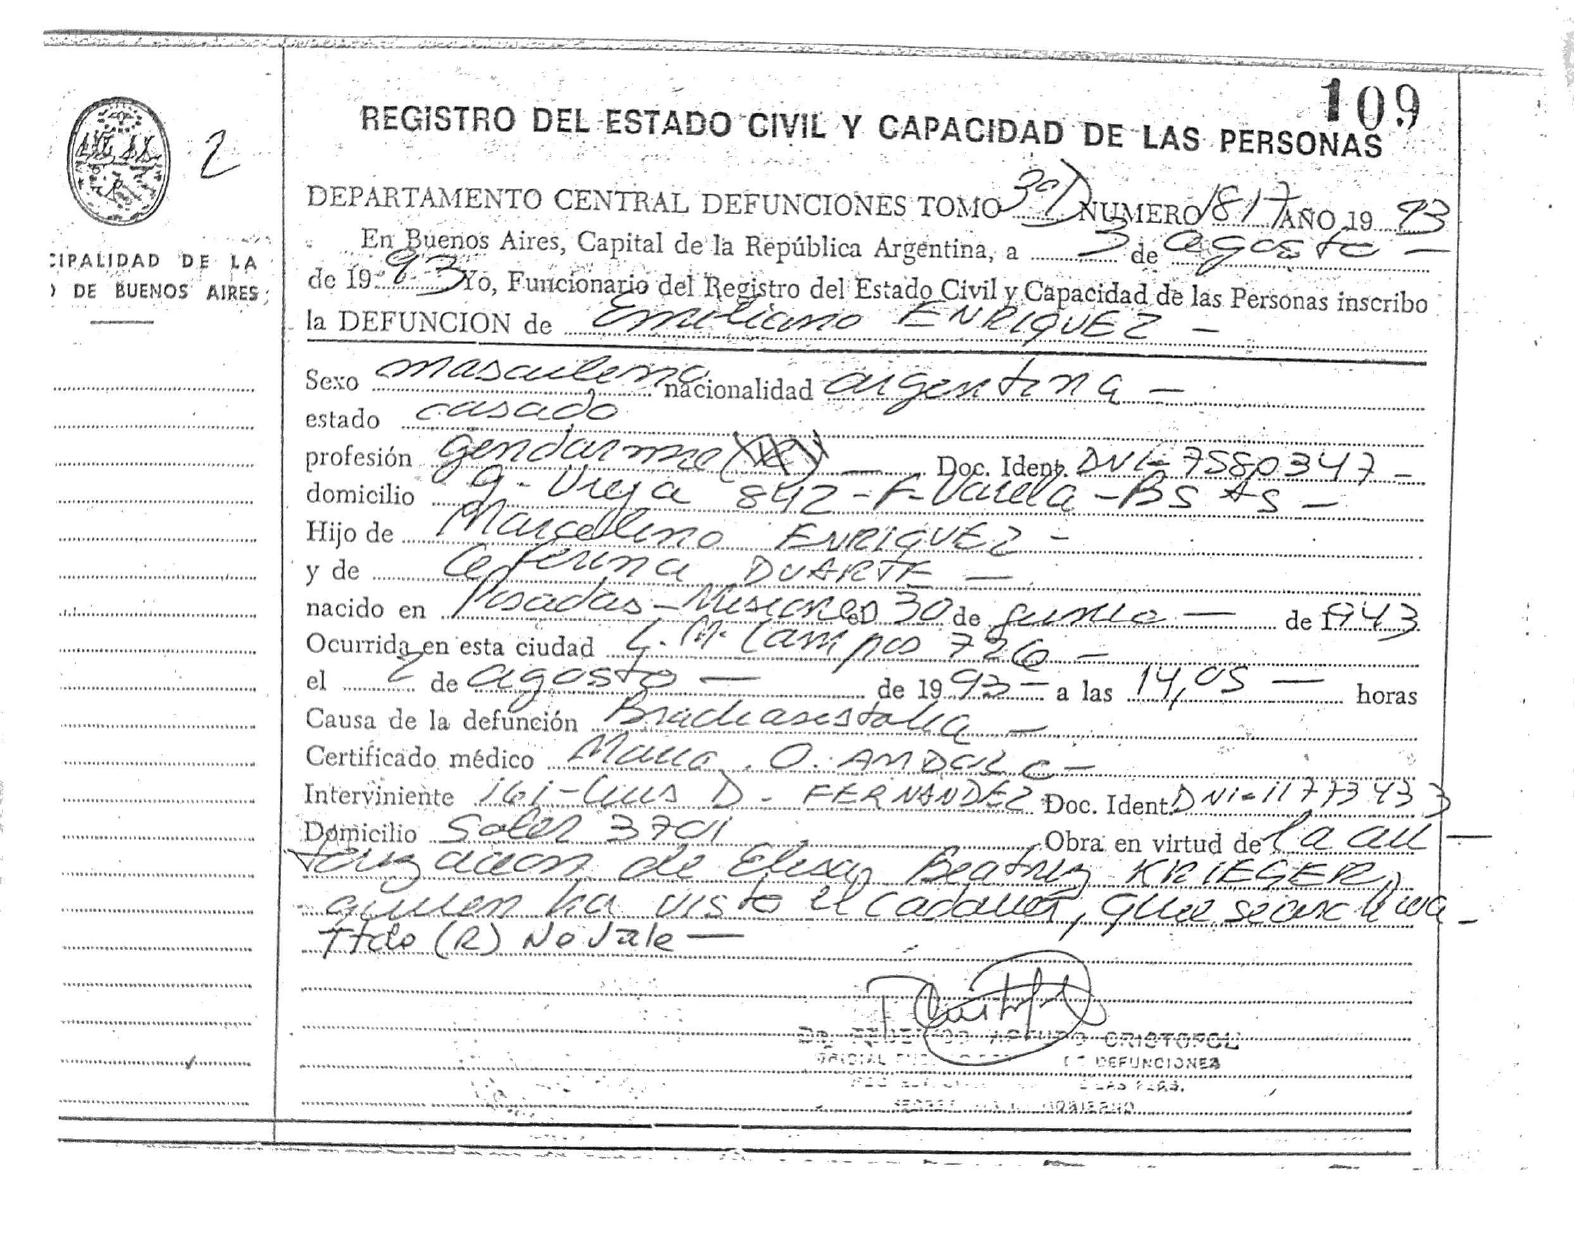 109
REGISTRO DEL ESTADO CIVIL Y CAPACIDAD DE LAS PERSONAS
2
DEPARTAMENTO CENTRAL DEFUNCIONES TOMO 3º D NUMERO 1817 AÑO 1993
En Buenos Aires, Capital de la República Argentina, a 3 de agosto —
CIPALIDAD DE LA
DE BUENOS AIRES
de 1993 Yo, Funcionario del Registro del Estado Civil y Capacidad de las Personas inscribo
la DEFUNCION de Emiliano ENRIQUEZ —
Sexo masculino nacionalidad argentina —
estado casado
profesión gendarme — Doc. Ident. DNI- 7580347 -
domicilio Vieja 842 - F. Varela - Bs As -
Hijo de Marcelino ENRIQUEZ -
y de Ceferina DUARTE —
nacido en Posadas - Misiones 30 de junio — de 1943
Ocurrida en esta ciudad L. M. Campos 726 -
el 2 de agosto — de 1993 - a las 14,05 — horas
Causa de la defunción Bradiasistolia -
Certificado médico María O.
Interviniente Luis D. FERNANDEZ Doc. Ident. DNI-11773433
Domicilio Soler 3701 Obra en virtud de la au —
torización de Beatriz KRIEGER,
quien ha visto el cadaver, que se archiva -
Ttdo (R) No Vale —
ARTURO CRISTOFOLI
DE DEFUNCIONES